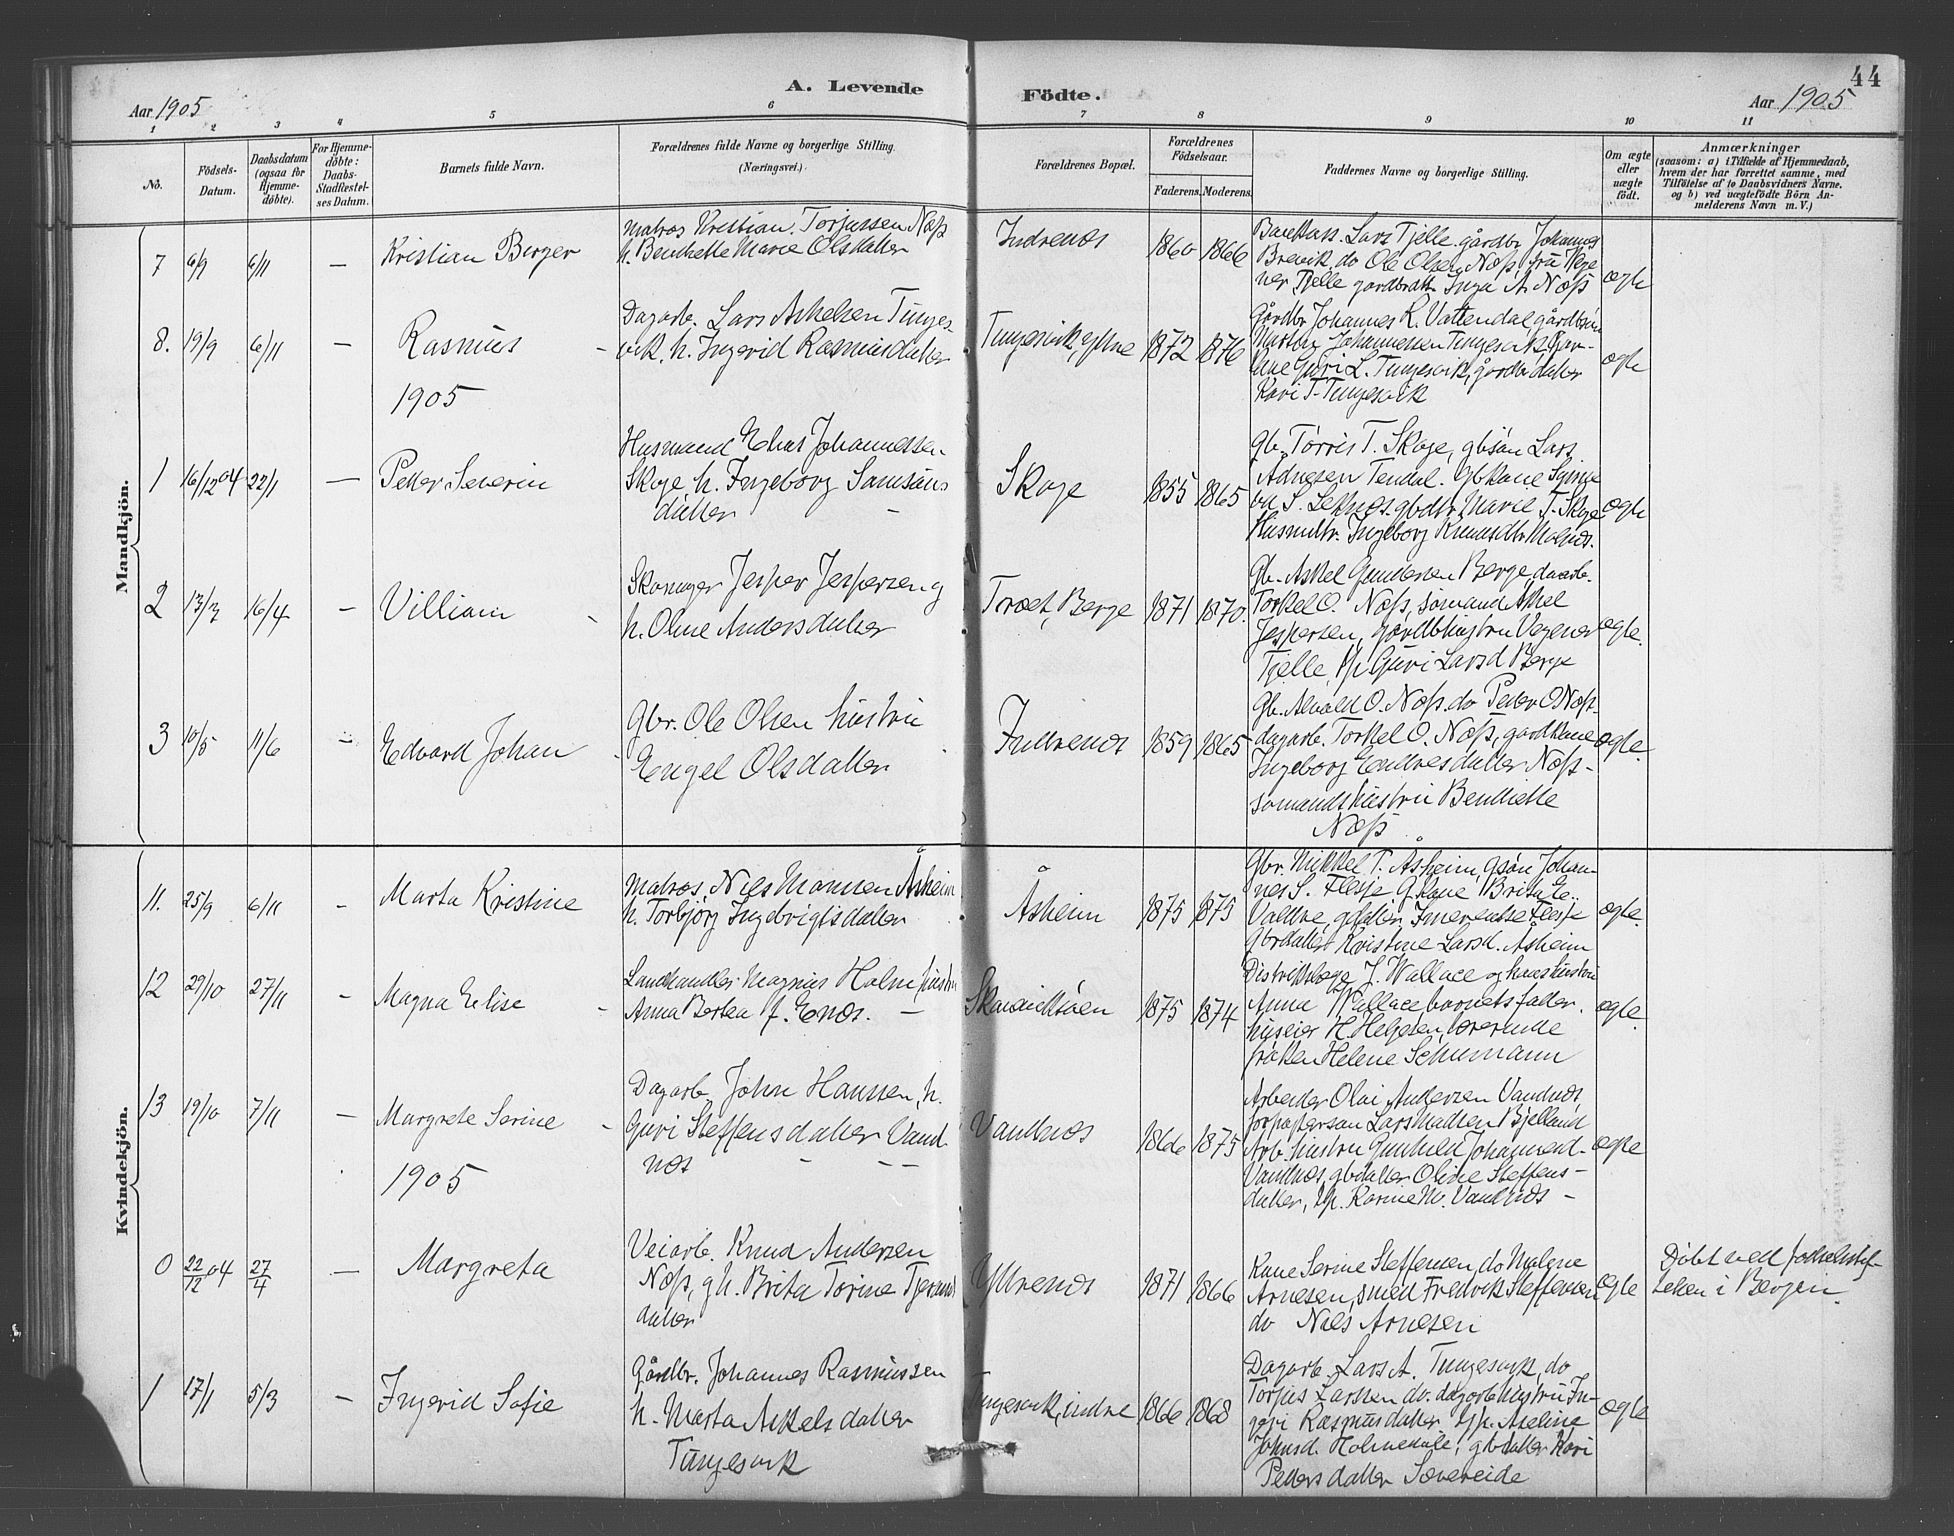 44
A. Levende Födte.
Aar 1905
Aar 1905
1 2 3 4 5 6 7 8 9 10 11
No.
Födsels-Datum.
Daabsdatum (ogsaa for Hjemme-döbte).
For Hjemme-döbte: Daabs-Stadfæstel-ses Datum.
Barnets fulde Navn.
Forældrenes fulde Navne og borgerlige Stilling.
(Næringsvei.)
Forældrenes Bopæl.
Forældrenes Födselsaar.
Faderens. Moderens.
Faddernes Navne og borgerlige Stilling.
Om ægte eller uægte födt.
Anmærkninger
(saasom: a) i Tilfælde af Hjemmedaab,
hvem der har forrettet samme, med
Tilföielse af to Daabsvidners Navne.
og b) ved uægtefödte Börn An-
melderens Navn m. V.)
Mandkjön.
7 6/9 6/11 — Kristian Berger
Matros Kristian Torjussen Næss
h. Benthette Marie Olsdatter
Indrenæs 1860 1866
Lars Tjelle gårdbr. Johannes
Brevik, do Ole Olsen Næss, fru
Tjelle Inga A. Næss
ægte
8. 19/9 6/11 — Rasmus
Dagarb. Lars Askelsen Tunges-
vik h. Ingerid Rasmusdatter
Tungesvik, ytre 1872 1876
Gårdbr. Johannes R. Vattendal gårdbsön
Martin Johannessen Tungesvik
Guri L. Tungesvik, gårdbrdatter
Kari T. Tungesvik
ægte
1905
1 16/12 04 22/1 — Peder Severin
Husmand Elias Johannessen
Skoge h. Ingeborg Samsons
datter
Skoge 1855 1865
gb. Torris T. Skoge, gbsön Lars
Adnesen Tendal. Gbkone
S. Leknes. gbdtr. Marie T. Skoge
Husmdtr. Ingeborg Knudsdtr
ægte
2 13/3 16/4 — Villiam
Skomager Jesper Jespersen og
h. Oline Andersdatter
Træet, Berge 1871 1870.
Gb. Askel Gundersen Berge, daarb.
Torkel O. Næss, sömand Askel
Jespersen, gårdbhustru Vegener
Tjelle, p/p Guri Larsd Berge
ægte.
3 10/5 11/6 — Edvard Johan
Gbr. Ole Olsen hustru
Engel Olsdatter
Indrenæs 1859 1865
Gb. O. Næss. do Peder O Næss-
dagarb. Torkel O. Næss, gårdkone
Ingeborg Endresdatter Næss-
sömandshustru Benthette
Næss
ægte.
Kvindekjön.
11. 25/9 6/11 - Marta Kristine
Matros, Nils Monsen Åsheim
h. Torbjörg Ingebrigtsdatter
Åsheim 1875 1875
Gbr. Mikkel T. Åsheim, gsön Johan-
nes S. Flesje G.kone Brita E.
Valdve, gdatter Flesje
Gbrdatter Kristine Larsd. Åsheim
ægte.
12 29/10 27/11 - Magna Elise
Landhandler Magnus Holm, hustru
Anna Bertea f. Enæs. —
Skånevikssöen 1875 1874
Distriktslæge J. Wallace og hans hustru
Anna Wallace, barnets fader.
huseier H. Helgesen, lærerinde
fröken Helene Schumann
ægte.
13 19/10 7/11 — Margrete Serine
Dagarb. John Hansen, h.
Guri Steffensdatter Vand-
næs
Vandnæs 1866 1875
Arbeider Olai Andersen Vandnæs,
forpaktersön Lars Madsen Bjelland
Arb. hustru Gunhild Johannesd.
Vandnæs, gbdatter Oline Steffens-
datter, p/p. Karine M. Vandnæs —
ægte
1905
0 22/12 04 27/4 — Margreta
Veiarb. Knud Andersen
Næss, g h. Brita Torine Tjerands
datter
Ytrenæs 1871 1866
Kone Serine Steffensen, do Malene
Arnesen, smed Fredrik Steffensen
do Nils Arnesen
ægte
Döbt ved födselsstif-
telsen i Bergen.
1 17/1 5/3 — Ingerid Sofie
Gårdbr. Johannes Rasmussen
h. Marta Askelsdatter
Tungesvik
Tungesvik, indre 1866 1868
Dagarb. Lars A. Tungesvik, do
Torjus Larssen do. dagarbhustru In-
geri Rasmusdatter p/p. Aseline
Johnsd. Holmedale, gbdatter Kari
Pedersdatter Sævereide
ægte